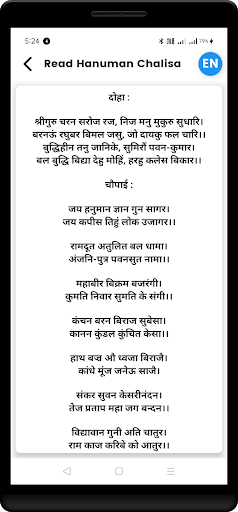 5:24 79%
Read Hanuman Chalisa EN
दोहा :
श्रीगुरु चरन सरोज रज, निज मनु मुकुरु सुधारि।
बरनऊं रघुबर बिमल जसु, जो दायकु फल चारि।।
बुद्धिहीन तनु जानिके, सुमिरौं पवन-कुमार।
बल बुद्धि बिद्या देहु मोहिं, हरहु कलेस बिकार।।
चौपाई :
जय हनुमान ज्ञान गुन सागर।
जय कपीस तिहुं लोक उजागर।।
रामदूत अतुलित बल धामा।
अंजनि-पुत्र पवनसुत नामा।।
महाबीर बिक्रम बजरंगी।
कुमति निवार सुमति के संगी।।
कंचन बरन बिराज सुबेसा।
कानन कुंडल कुंचित केसा।।
हाथ बज्र औ ध्वजा बिराजै।
कांधे मूंज जनेऊ साजै।
संकर सुवन केसरीनंदन।
तेज प्रताप महा जग बन्दन।।
विद्यावान गुनी अति चातुर।
राम काज करिबे को आतुर।।